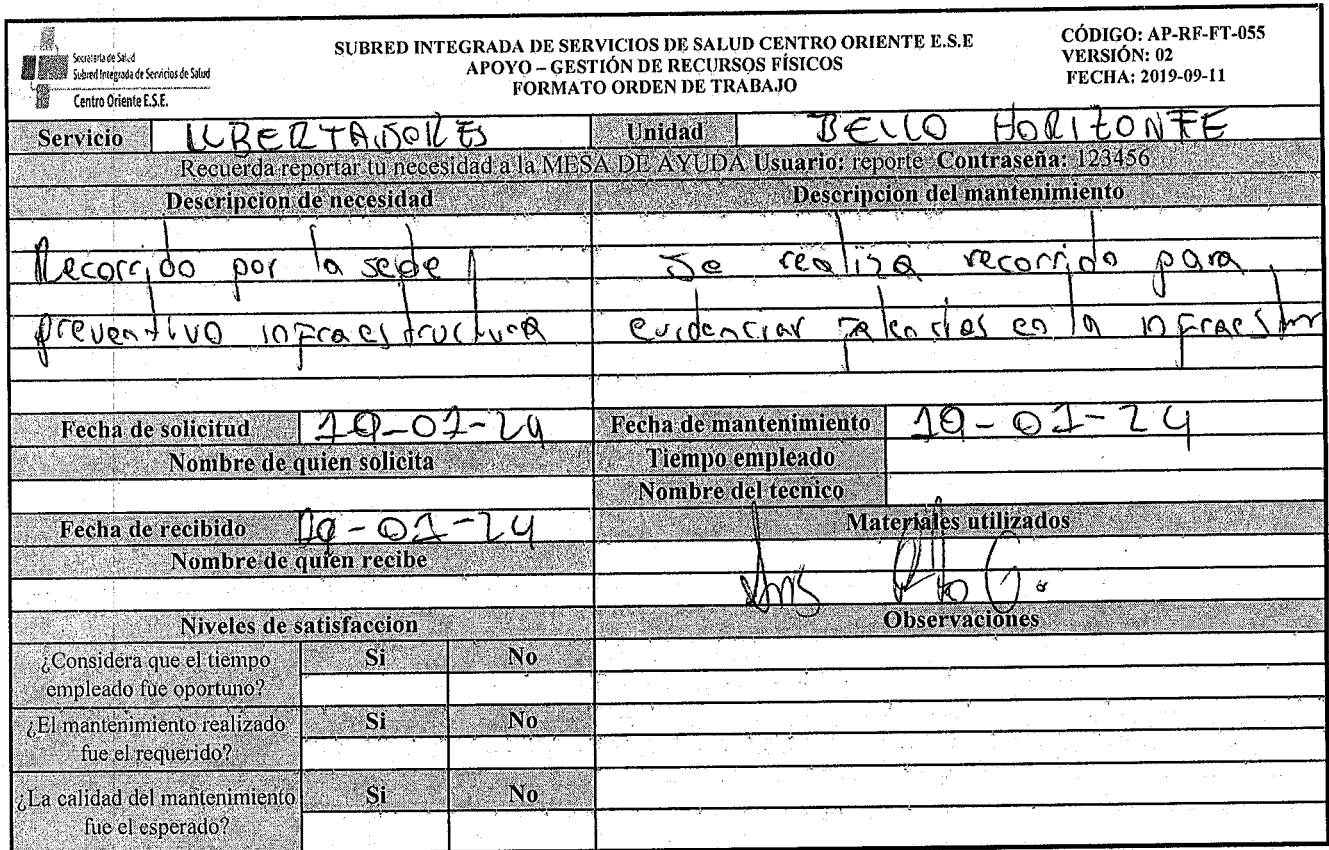 Secretaría de Salud
Subred Integrada de Servicios de Salud
Centro Oriente E.S.E.
SUBRED INTEGRADA DE SERVICIOS DE SALUD CENTRO ORIENTE E.S.E
APOYO – GESTIÓN DE RECURSOS FÍSICOS
FORMATO ORDEN DE TRABAJO
CÓDIGO: AP-RF-FT-055
VERSIÓN: 02
FECHA: 2019-09-11
Servicio LIBERTADORES Unidad BELLO HORIZONTE
Recuerda reportar tu necesidad a la MESA DE AYUDA Usuario: reporte Contraseña: 123456
Descripcion de necesidad
Recorrido por la sede
preventivo infraestructura
Descripcion del mantenimiento
Se realiza recorrido para
evidenciar falencias en la infraestr
Fecha de solicitud 10-01-24
Fecha de mantenimiento 10-01-24
Nombre de quien solicita
Tiempo empleado
Nombre del tecnico
Fecha de recibido 10-01-24
Materiales utilizados
Nombre de quien recibe
Niveles de satisfaccion
Observaciones
¿Considera que el tiempo
empleado fue oportuno?
Si No
¿El mantenimiento realizado
fue el requerido?
Si No
¿La calidad del mantenimiento
fue el esperado?
Si No